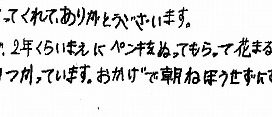 ってくれて、ありがとうございます。
、2年くらいまえにペンキをぬってもらって花まる
つかっています。おかげで朝ねぼうせずに